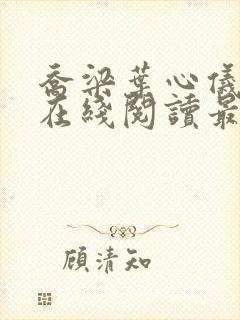 喬梁葉心儀
在綫閱讀最
顧清知